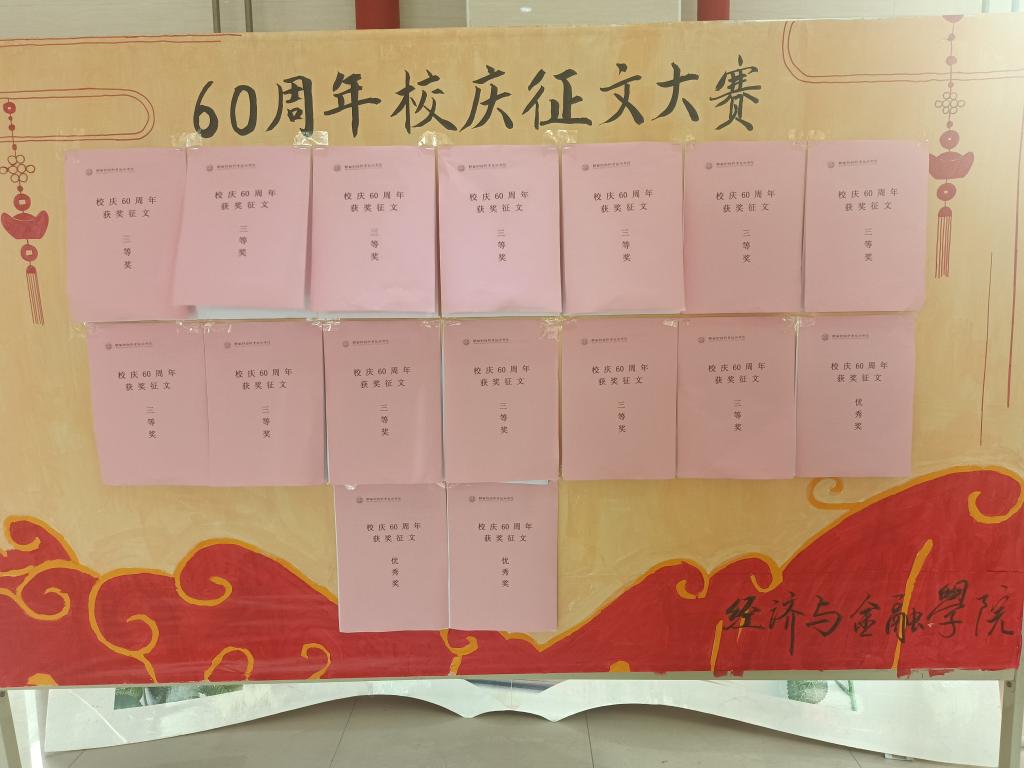 60周年校庆征文大赛
校庆60周年
获奖征文
三等奖
校庆60周年
获奖征文
三等奖
校庆60周年
获奖征文
三等奖
校庆60周年
获奖征文
三等奖
校庆60周年
获奖征文
三等奖
校庆60周年
获奖征文
三等奖
校庆60周年
获奖征文
三等奖
校庆60周年
获奖征文
三等奖
校庆60周年
获奖征文
三等奖
校庆60周年
获奖征文
三等奖
校庆60周年
获奖征文
三等奖
校庆60周年
获奖征文
三等奖
校庆60周年
获奖征文
三等奖
校庆60周年
获奖征文
优秀奖
校庆60周年
获奖征文
优秀奖
校庆60周年
获奖征文
优秀奖
经济与金融學院